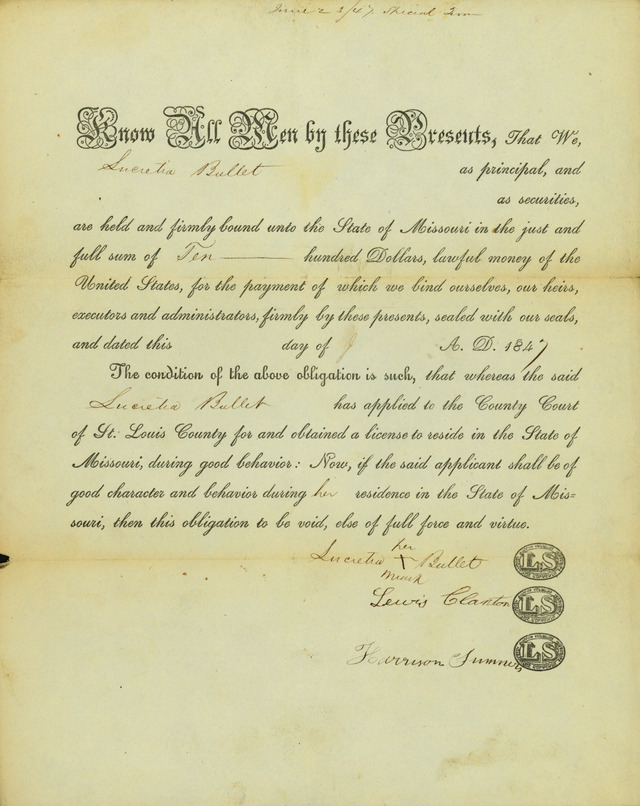 June 2 3/47 Special Term
Know All Men by these Presents, That We,
Lucretia Bullet as principal, and
as securities,
are held and firmly bound unto the State of Missouri in the just and
full sum of Ten hundred Dollars, lawful money of the
United States, for the payment of which we bind ourselves, our heirs,
executors and administrators, firmly by these presents, sealed with our seals,
and dated this day of A. D. 1847
The condition of the above obligation is such, that whereas the said
Lucretia Bullet has applied to the County Court
of St. Louis County for and obtained a license to reside in the State of
Missouri, during good behavior: Now, if the said applicant shall be of
good character and behavior during her residence in the State of Mis=
souri, then this obligation to be void, else of full force and virtue.
her
Lucretia X Bullet LS
mark
Lewis Clanton LS
Harrison Sumner LS